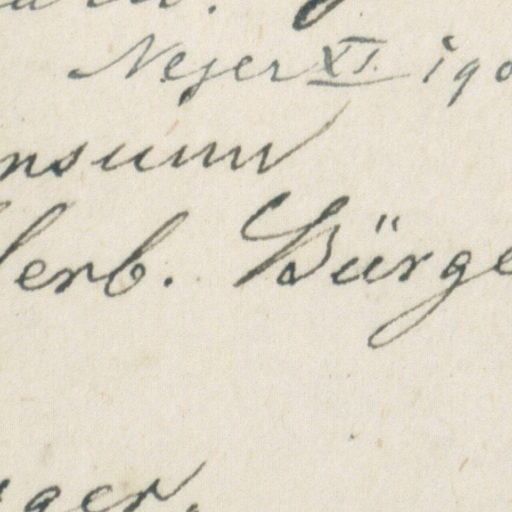 Nejer XI. 190
nsum
Herb. Bürge
ger.